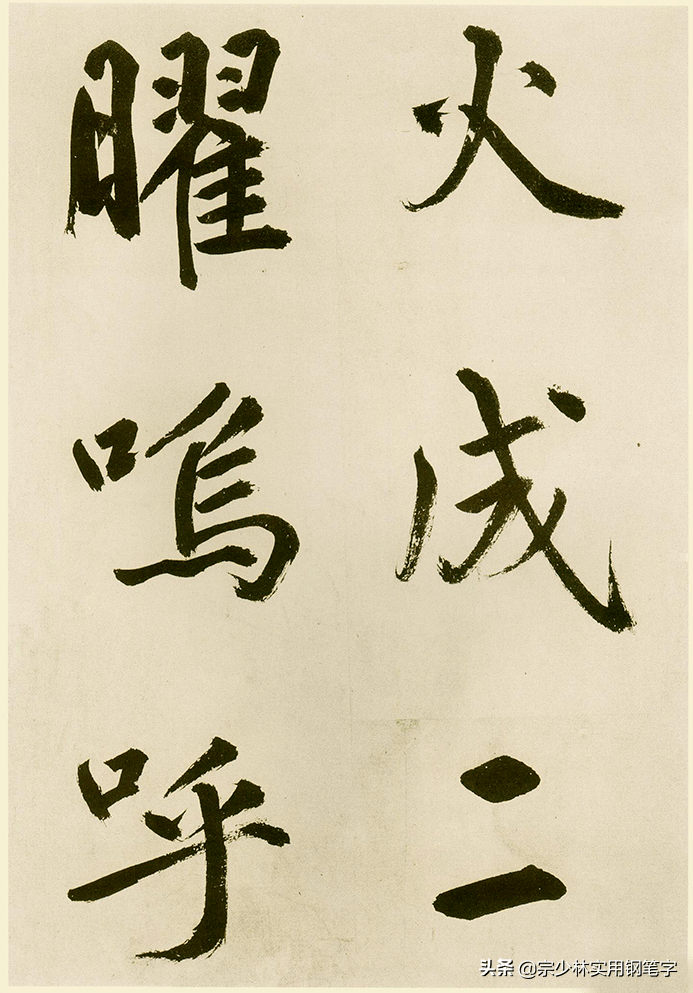 火成二
曜嗚呼
头条 @宗少林实用钢笔字